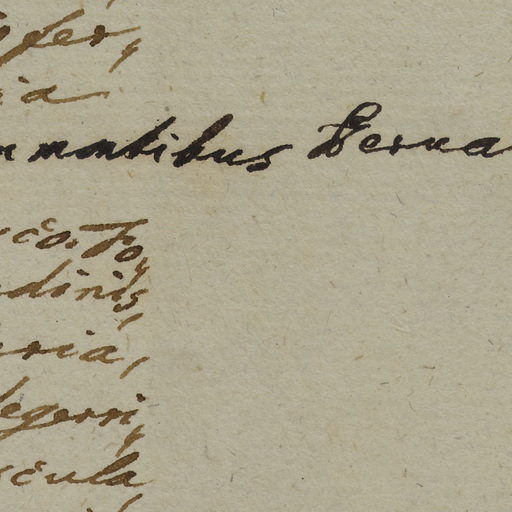 fer,
ia
mmatibus Berna
co. Fo,
dinis,
ria,
legerri,
scula